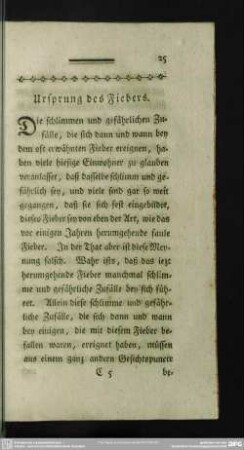 25
Ursprung des Fiebers.
Die schlimmen und gefährlichen Zu-
fälle, die sich dann und wann bey
dem oft erwähnten Fieber ereignen, ha-
ben viele hiesige Einwohner zu glauben
veranlasset, daß dasselbe schlimm und ge-
fährlich sey, und viele sind gar so weit
gegangen, daß sie sich fest eingebildet,
dieses Fieber sey von eben der Art, wie das
vor einigen Jahren herumgehende faule
Fieber. In der That aber ist diese Mey-
nung falsch. Wahr ists, daß das iezt
herumgehende Fieber manchmal schlim-
me und gefährliche Zufälle bey sich füh-
ret. Allein diese schlimme und gefähr-
liche Zufälle, die sich dann und wann
bey einigen, die mit diesem Fieber be-
fallen waren, ereignet haben, müssen
aus einem ganz andern Gesichtspuncte
C 5 be-
DFG